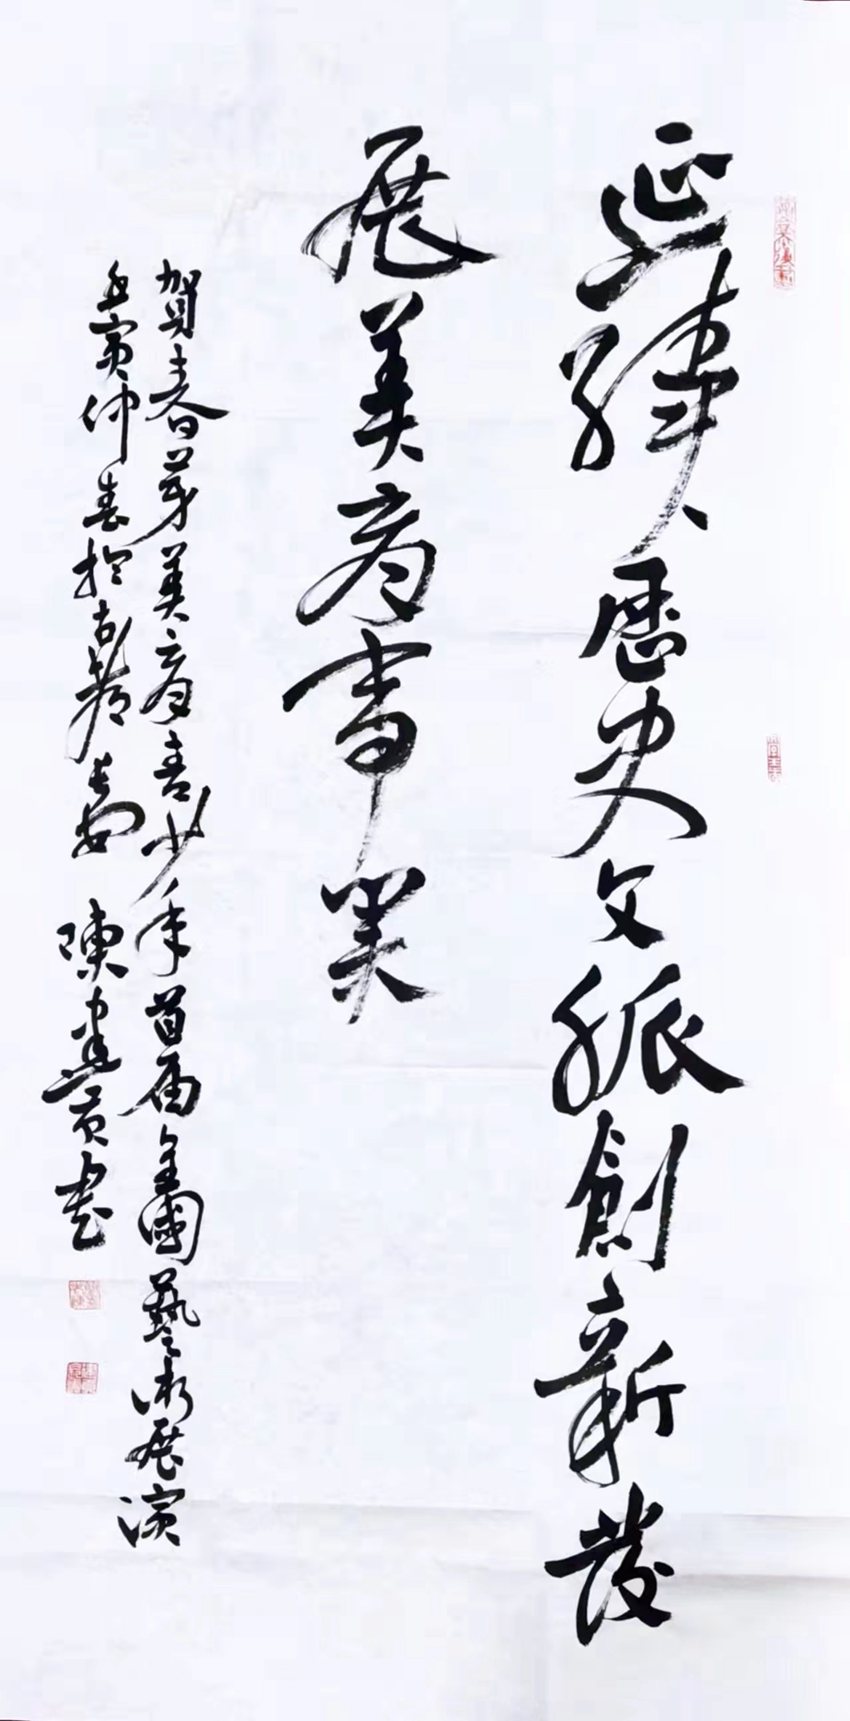 延續歷史文脈創新發
展美育事業
賀春芽美育青少年首届全國藝術展演
壬寅仲春於古都長安 陳建貢書